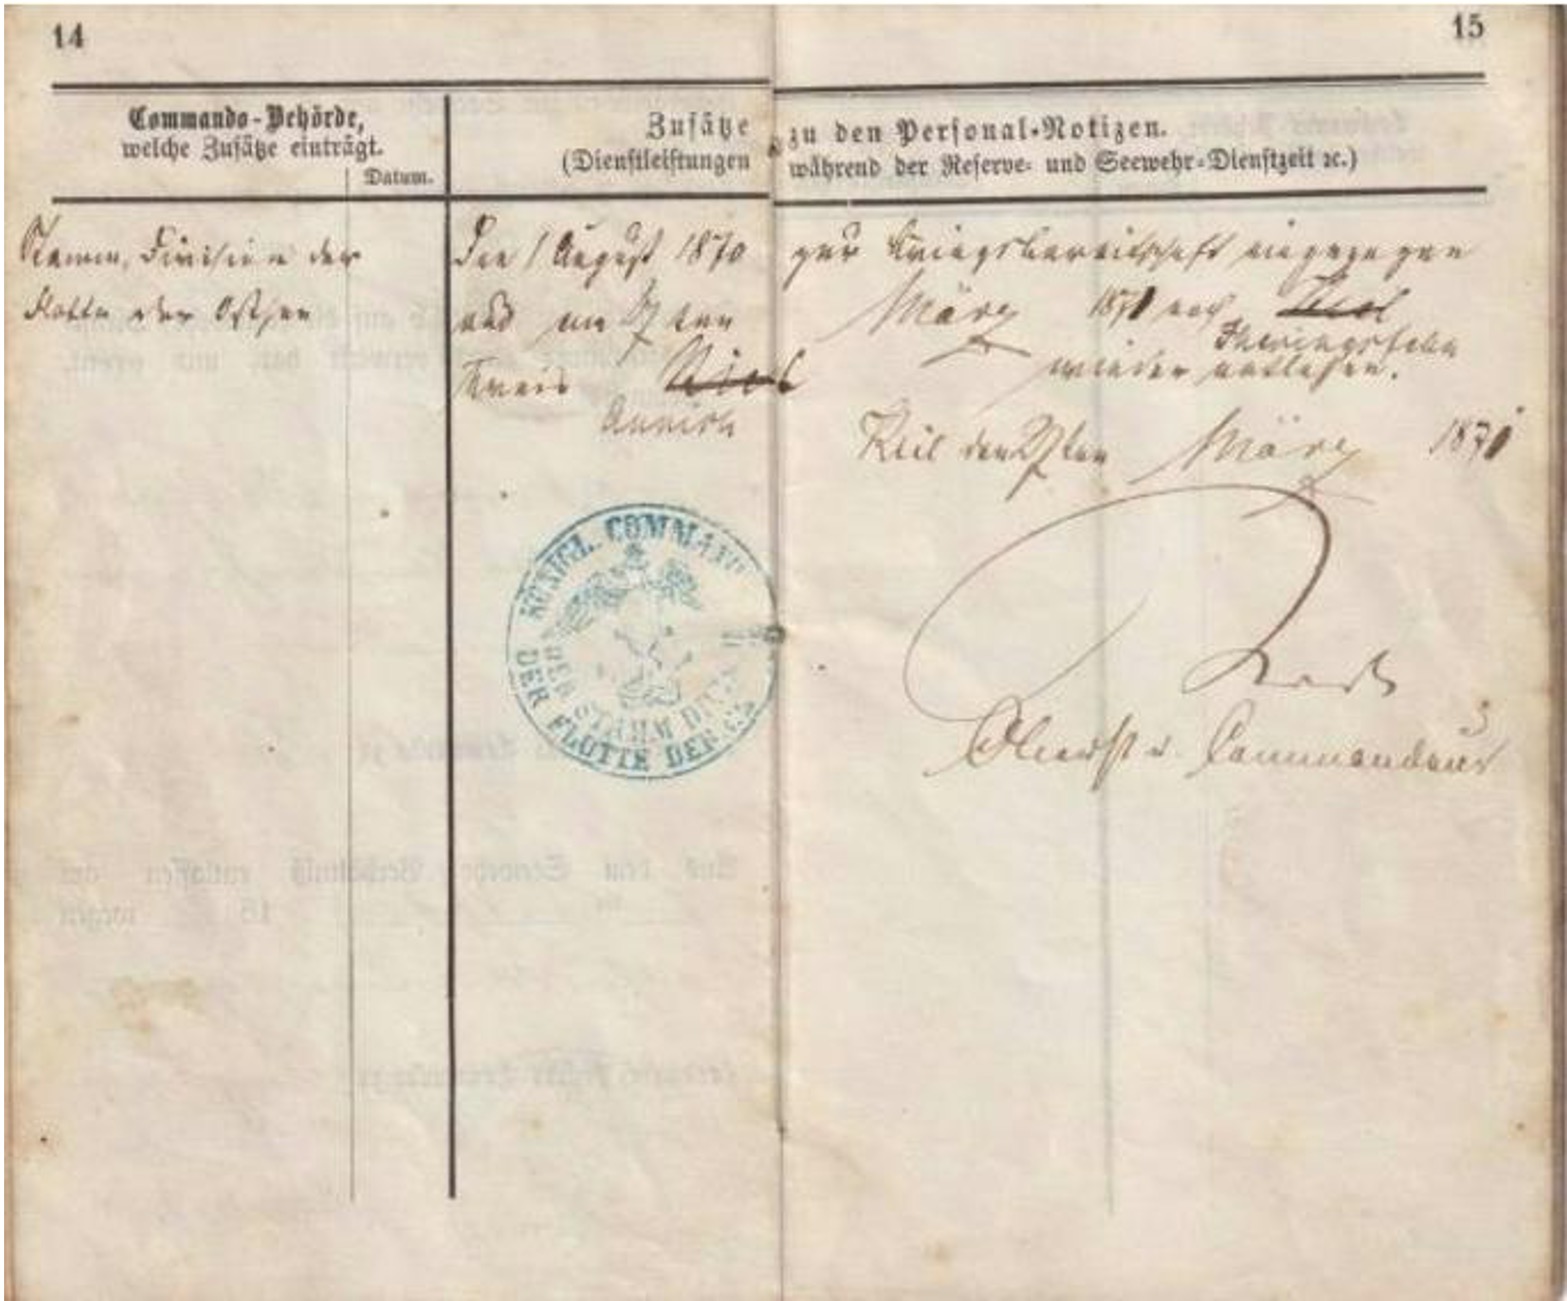 14
15
Commando-Behörde,
welche Zusätze einträgt.
Datum.
Zusätze zu den Personal-Notizen.
(Dienstleistungen während der Reserve- und Seewehr-Dienstzeit ꝛc.)
Stamm-Division der
Flotte der Ostsee
Den 1 August 1870 zur Kriegsbereitschaft eingezogen
und am 27 ten März 1871 nach Kiel
Theringsfehn
Kreis Kiel wieder entlassen.
Aurich
Kiel den 27ten März 1871
KÖNIGL. COMMANDO
DER STAMM DIVIS
DER FLOTTE DER OS
Oberst u. Commandeur